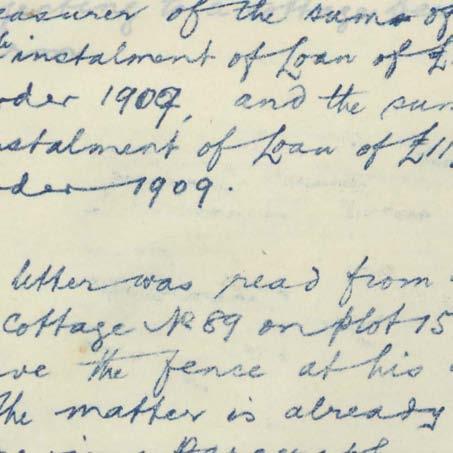 easurer of the sums of
instalment of Loan of £
der 1907, and the sum
stalment of Loan of £11
der 1909.
letter was read from
Cottage No 89 on plot 15
ve the fence at his
The matter is already